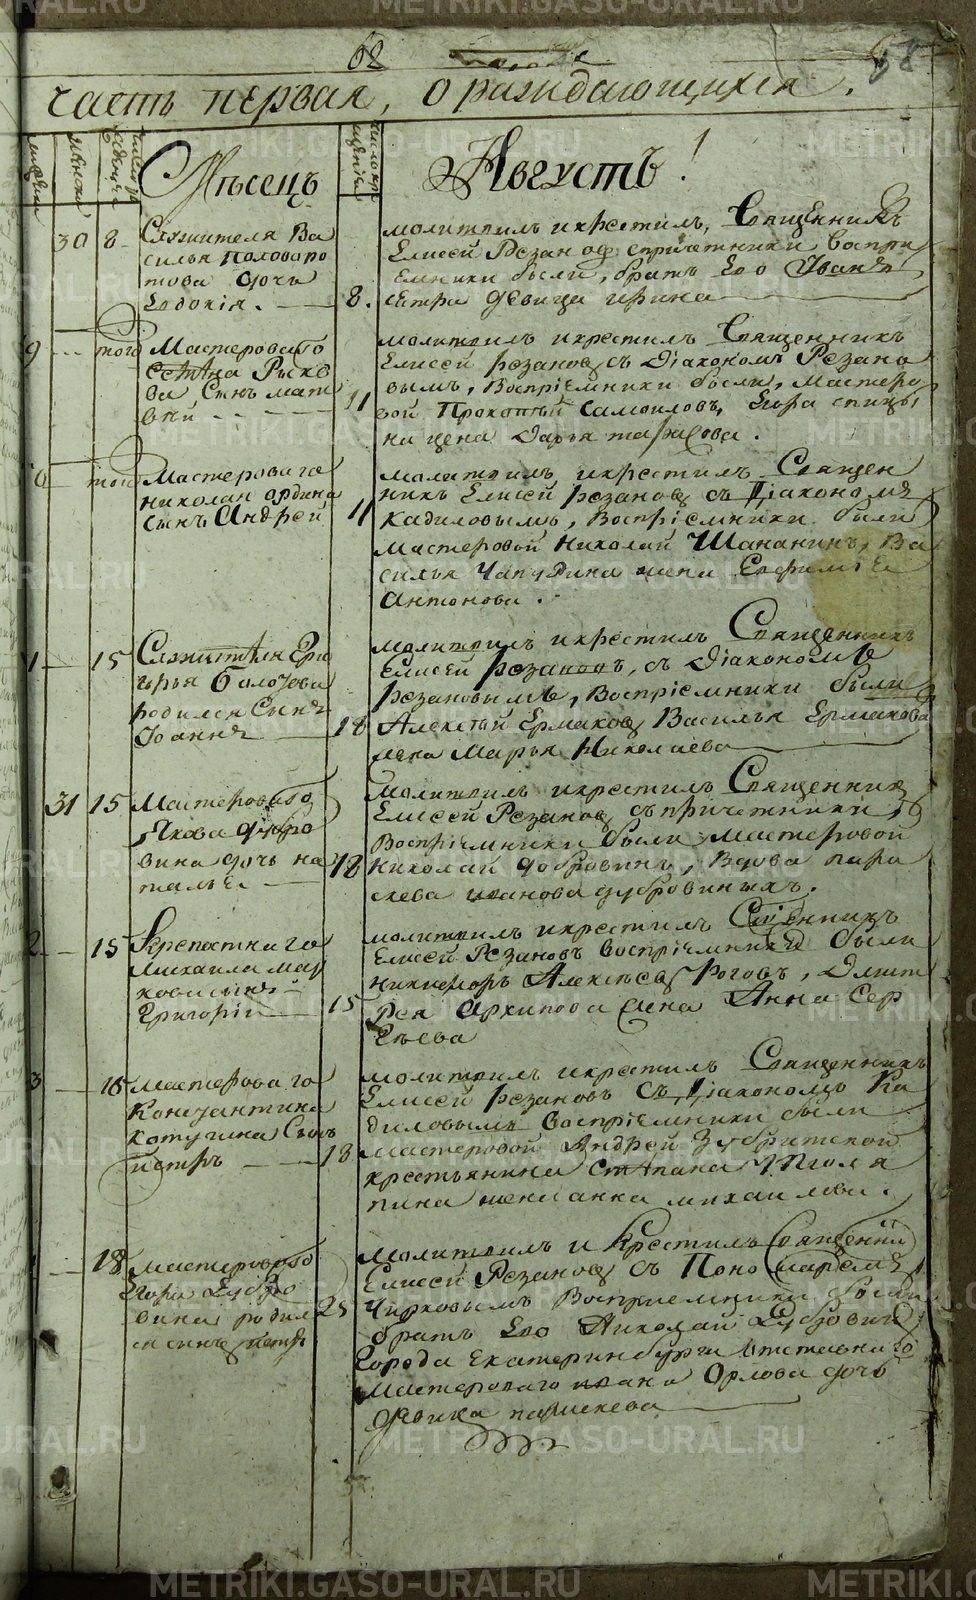 68
58
часть первая, о раждающихся.
Мѣсецъ
Августъ!
30 8
Служителя Ва
силья Половоро
това дочь
Евдокія.
8.
молитвилъ и крестилъ, Священникъ
Елисей Рѣзанов с причетники воспри
емники были, братъ Его Иванъ
сестра девица Ирина
9 того
Мастероваго
Степана Рыко
ва Сынъ мат
вѣй
11
молитвилъ и крестилъ Священникъ
Елисей Рѣзановъ съ Діакономъ Рѣзано
вымъ, Воспріемники были, мастеро
вой Прокопей Самоиловъ, Егора спицы
на жена Дарья тарасова.
того
Мастероваго
Николая ордина
сынъ Андрей
11
молитвилъ и крестилъ Священ
никъ Елисей Рѣзановъ съ Діакономъ
Кадиловымъ, Воспріемники были
мастеровой Николай Шананинъ, Ва
силья Чапурина жена Евфимья
Антонова.
15
Служителя Гри
горья болотова
родился Сынъ
Іоаннъ
18
молитвилъ и крестилъ Священникъ
Елисей Рѣзановъ, съ Діакономъ
Рѣзановымъ, Воспріемники были
Алексѣй Ермаковъ, Василья Ермакова
жена Марья Николаева
31 15
Мастероваго
Якова дубро
вина дочь на
талья
18
молитвилъ и крестилъ Священникъ
Елисей Рѣзановъ съ причетники,
Воспріемники были мастеровой
Николай дубровинъ, Вдова пара
скева иванова дубровиныхъ.
2 15
Крепостнаго
Михаила мар
кова сынъ
Григорій
15
молитвилъ и крестилъ Священникъ
Елисей Рѣзановъ воспріемники были
никифоръ Алексѣевъ Роговъ, Дмит
рея Архипова жена Анна Сер
гѣева
3 16
мастероваго
Константина
котугина Сынъ
петръ
18
молитвилъ и крестилъ Священникъ
Елисей Рѣзановъ съ Діакономъ Ка
диловымъ воспріемники были
мастеровой Андрей Зубритской
крестьянина Степана
пина жена анна михаилова.
18
мастероваго
Егора Дубро
вина родил
ся сынъ петръ
25
молитвилъ и Крестилъ Священникъ
Елисей Рѣзановъ съ Пономаремъ
Чирковымъ Восприемники были
братъ Его Николай Дубровин
города Екатеринбурга отставнаго
мастероваго ивана Орлова дочь
девица параскева